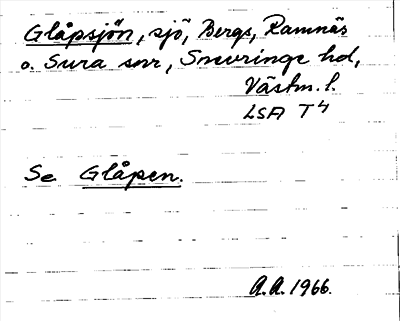 Glåpsjön, sjö, Bergs, Ramnäs
o. Sura snr, Snevringe hd,
Västm. l.
LSA T4
Se Glåpen.
A.A. 1966.